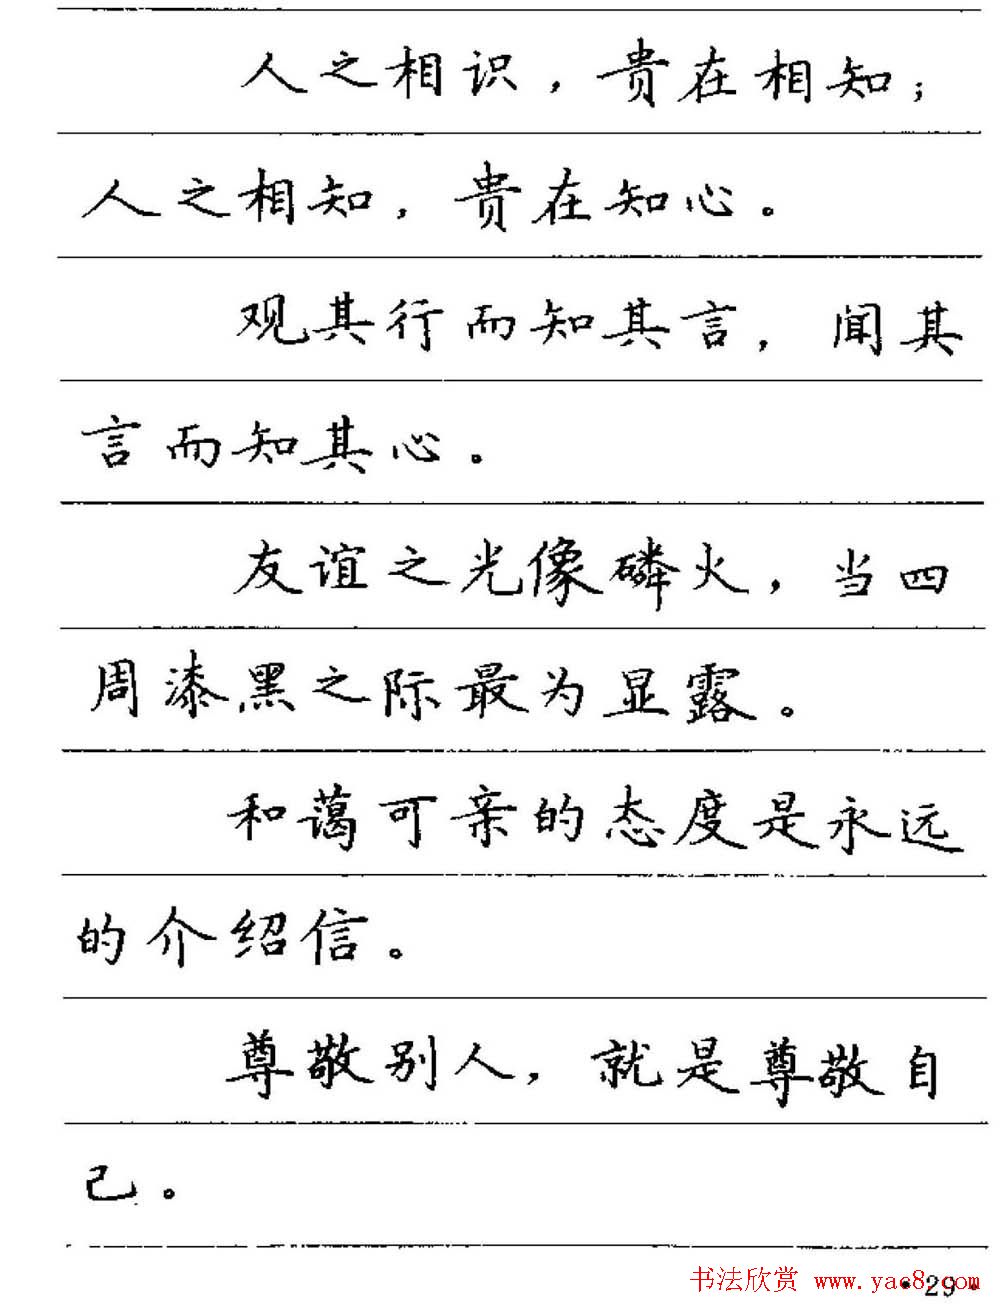 人之相识，贵在相知；
人之相知，贵在知心。
观其行而知其言，闻其
言而知其心。
友谊之光像磷火，当四
周漆黑之际最为显露。
和蔼可亲的态度是永远
的介绍信。
尊敬别人，就是尊敬自
己。
书法欣赏 www.yac8.com
·29·